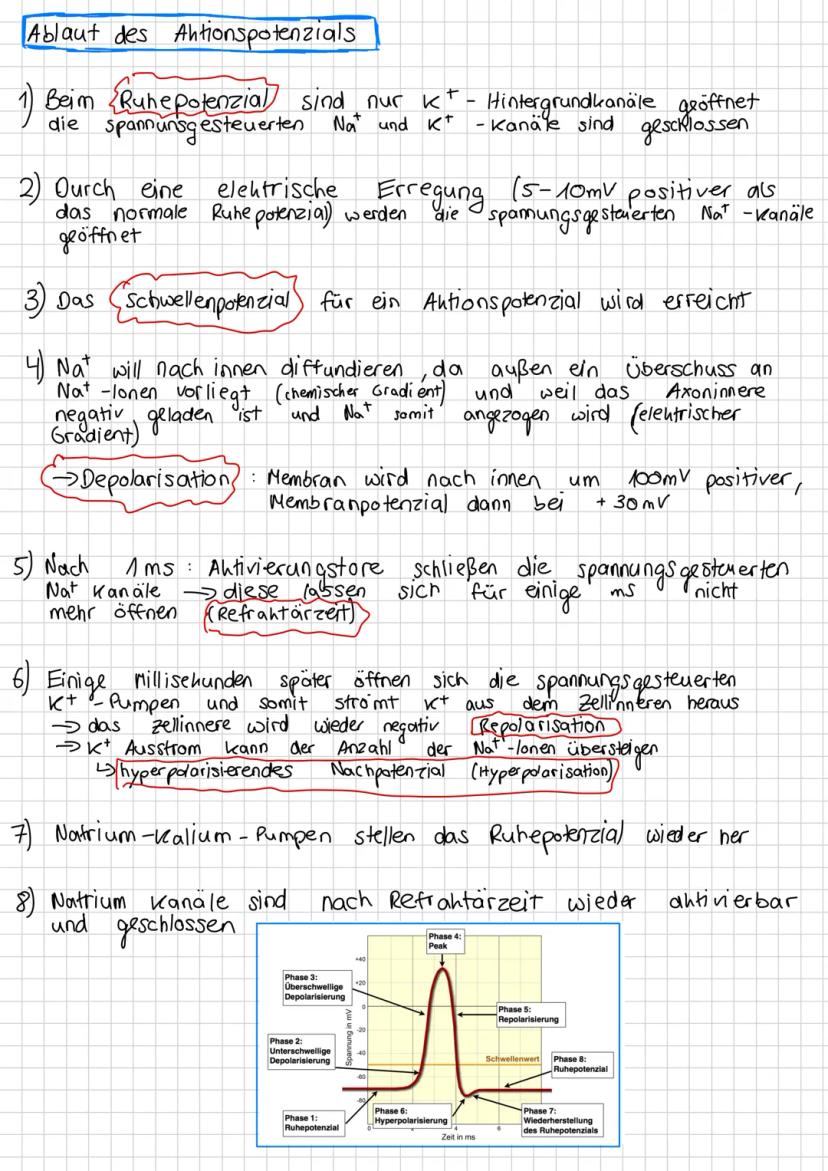 Ablauf des Aktionspotenzials
1) Beim Ruhepotenzial sind nur K+ - Hintergrundkanäle geöffnet
die spannunsgesteuerten Na+ und K+ - Kanäle sind geschlossen
2) Durch eine elektrische Erregung (5-10mV positiver als
das normale Ruhepotenzial) werden die spannungsgesteuerten Na+ -Kanäle
geöffnet
3) Das Schwellenpotenzial für ein Aktionspotenzial wird erreicht
4) Na+ will nach innen diffundieren, da außen ein Überschuss an
Na+ -Ionen vorliegt (chemischer Gradient) und weil das Axoninnere
negativ geladen ist und Na+ somit angezogen wird (elektrischer
Gradient)
→ Depolarisation : Membran wird nach innen um 100mV positiver,
Membranpotenzial dann bei +30mV
5) Nach 1ms : Aktivierungstore schließen die spannungsgesteuerten
Na+ Kanäle → diese lassen sich für einige ms nicht
mehr öffnen (Refraktärzeit)
6) Einige Millisekunden später öffnen sich die spannungsgesteuerten
K+ - Pumpen und somit strömt K+ aus dem Zellinnteren heraus
→ das Zellinnere wird wieder negativ Repolarisation
→ K+ Ausstrom kann der Anzahl der Na+ -Ionen übersteigen
↳ hyperpolarisierendes Nachpotenzial (Hyperpolarisation)
7) Natrium-Kalium-Pumpen stellen das Ruhepotenzial wieder her
8) Natrium Kanäle sind nach Refraktärzeit wieder aktivierbar
und geschlossen
Phase 4:
Peak
+40
Phase 3:
Überschwellige
Depolarisierung
+20
0
Phase 5:
Repolarisierung
-20
Spannung in mV
Phase 2:
Unterschwellige
Depolarisierung
-40
Schwellenwert
Phase 8:
Ruhepotenzial
-60
-80
Phase 1:
Ruhepotenzial
Phase 6:
Hyperpolarisierung
Phase 7:
Wiederherstellung
des Ruhepotenzials
0
4
6
Zeit in ms